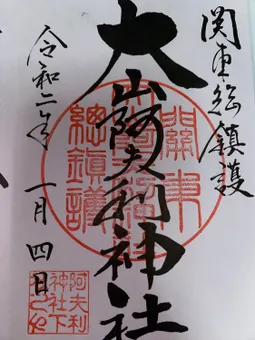 関東総鎮護
大山阿夫利神社
令和二年 一月 四日
關東
總鎮護
阿夫利
神社下